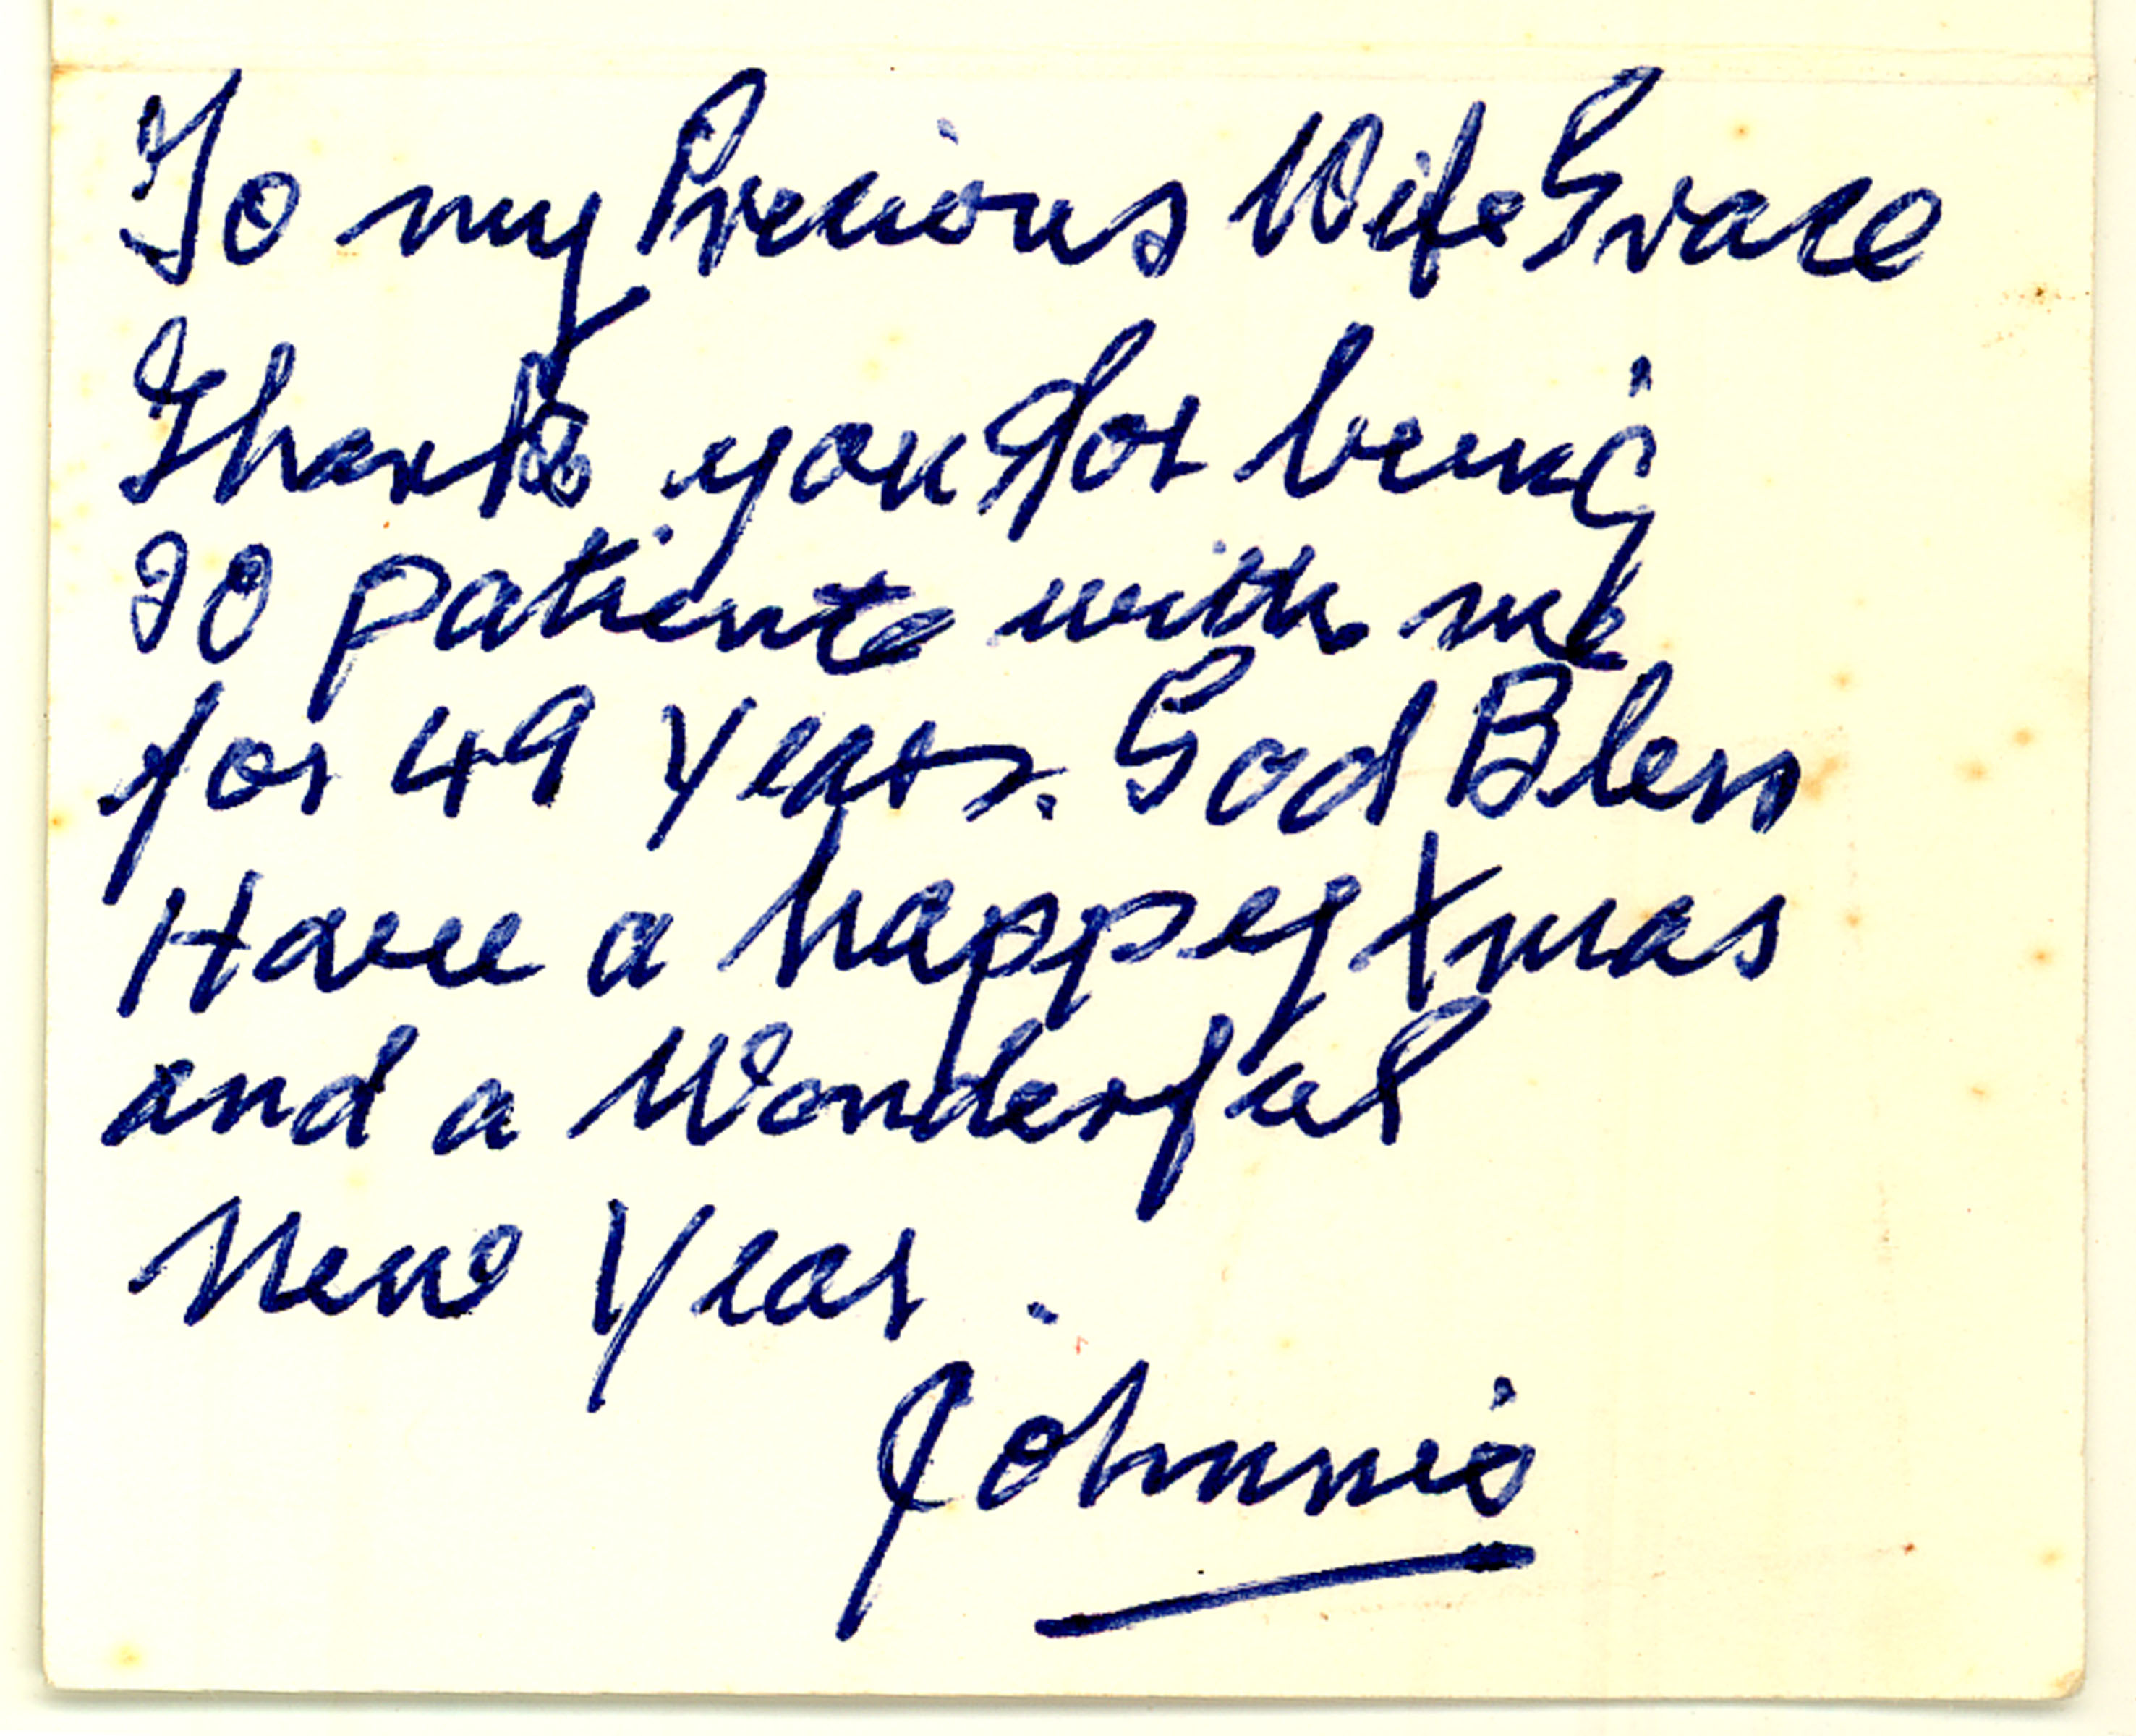 To my Precious Wife Grace
Thank you for being
so patient with me
for 49 Years. God Bless
Have a happy Xmas
and a Wonderful
New Year.
Johnnie